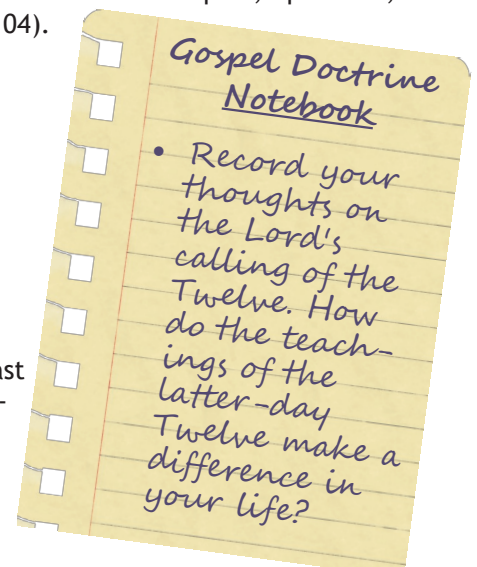 04).
Gospel Doctrine
Notebook
• Record your
thoughts on
the Lord's
calling of the
Twelve. How
do the teach-
ings of the
latter-day
Twelve make a
difference in
your life?
ast
-